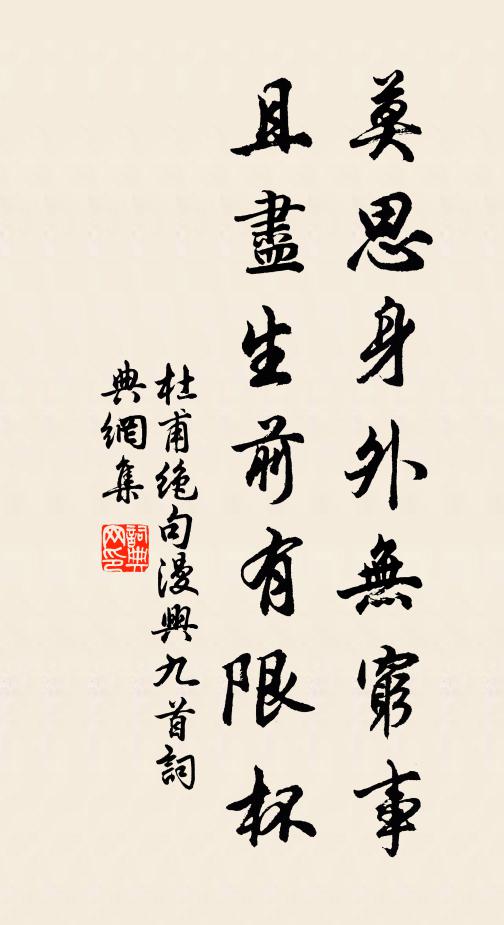 莫思身外無窮事
且盡生前有限杯
杜甫絶句漫興九首詞
典網集
詞典網印